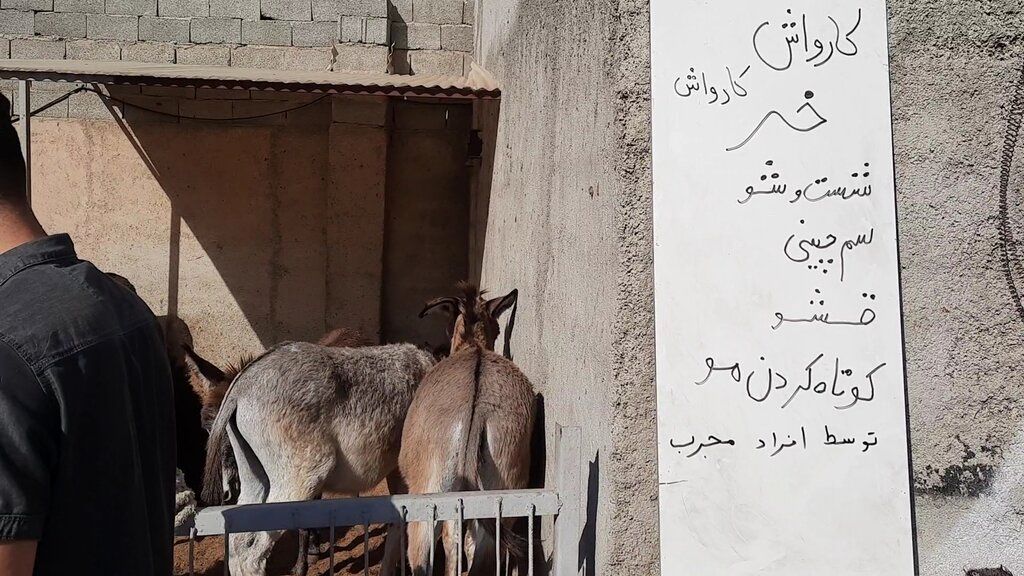 کارواش
کارواش
خر
شست و شو
سم چینی
قشو
کوتاه کردن مو
توسط افراد مجرب